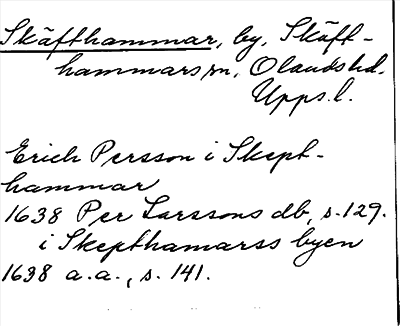 Skäfthammar, by, Skäft-
hammars sn, Olands hd.
Upps. l.
Erich Persson i Skept-
hammar
1638 Per Larssons db, s. 129.
i Skepthamarss byen
1638 a.a., s. 141.